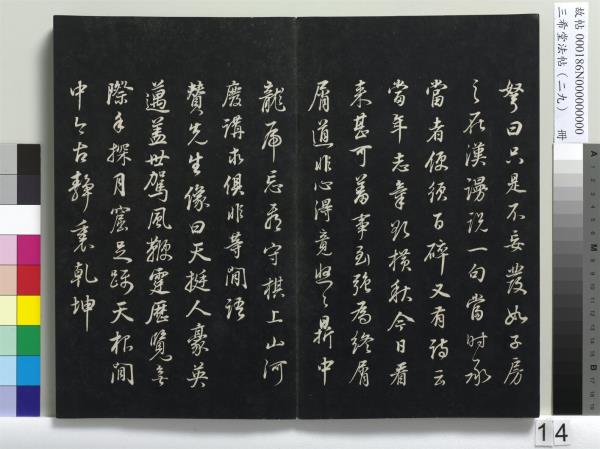 弩曰只是不妄發如子房
之在漢謾說一句當時承
當者便須百碎又有詩云
當年志氣欲橫秋今日看
來甚可羞事到強為終屑
屑道非心得竟悠悠鼎中
龍虎忘看守棋上山河
廢講求俱非等閒語
贊先生像曰天挺人豪英
邁蓋世駕風鞭霆歷覽無
際手探月窟足躡天根閒
中今古靜裏乾坤
故帖 000186N000000000
三希堂法帖(二九) 冊
14
A
M
B